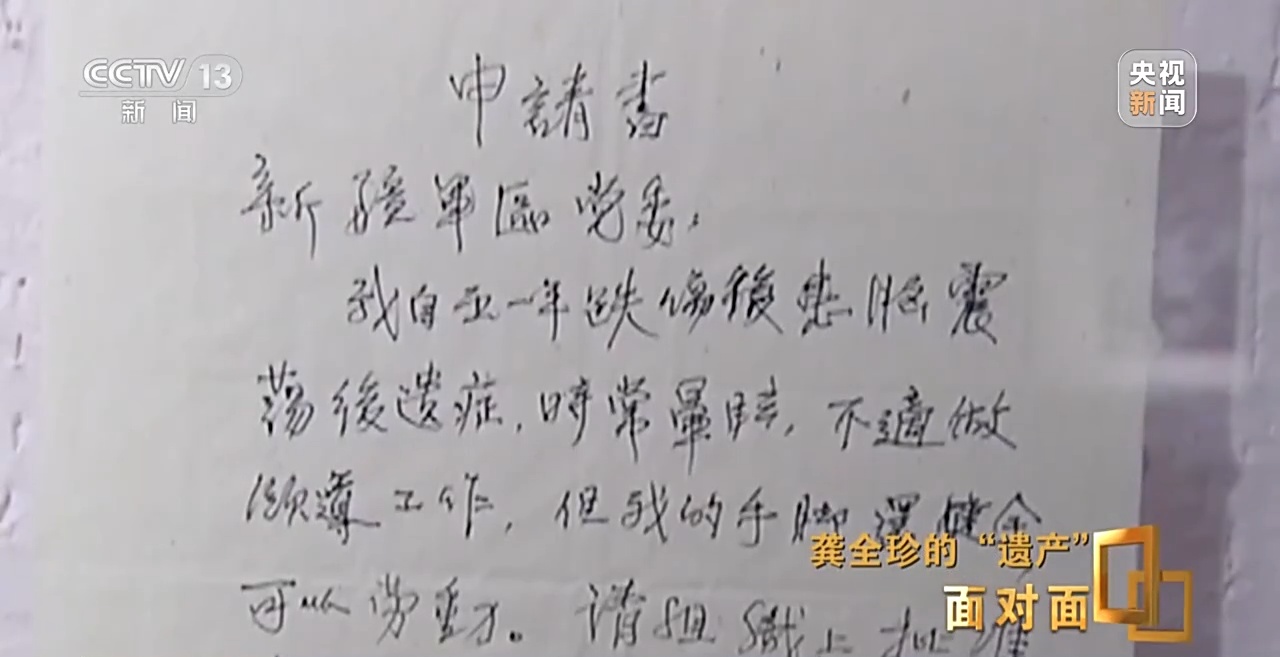 CCTV 13
新闻
央视
新闻
申請書
新疆軍區党委：
我自五一年跌傷後患脑震
荡後遗症，時常暈眩，不適做
領導工作，但我的手脚還健全
可以劳動。请组織上批准
龚全珍的“遗产”
面对面